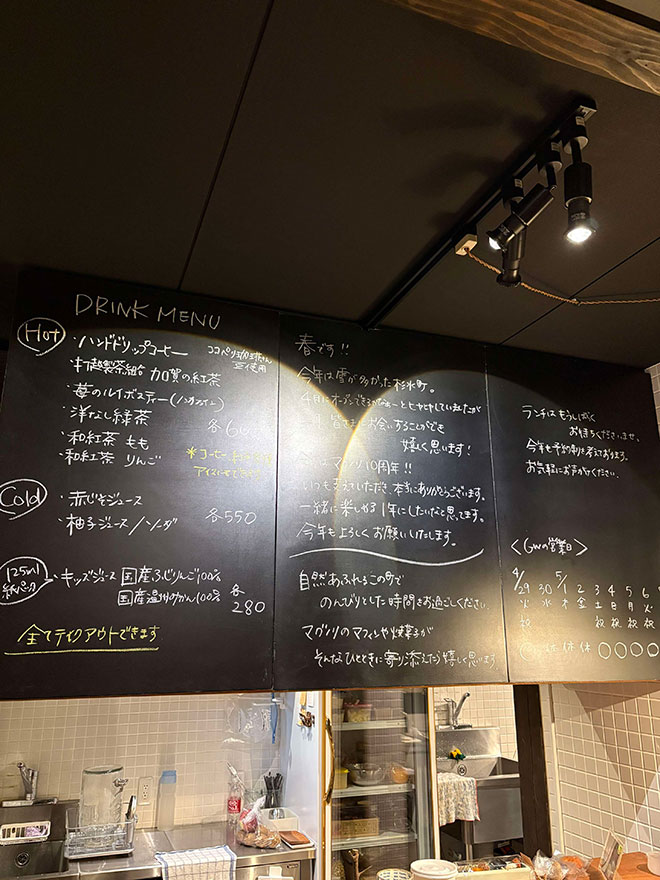 DRINK MENU
Hot
・ハンドドリップコーヒー
豆使用
・打越製茶組合 加賀の紅茶
・苺のルイボスティー(ノンカフェイン)
・洋なし緑茶
・和紅茶 もも
・和紅茶 りんご
各6
＊コーヒー
アイスにもできます
Cold
・赤じそジュース
・柚子ジュース/ソーダ
各550
125ml
紙パック
・キッズジュース 国産ふじりんご100%
国産温州みかん100%
各
280
全てテイクアウトできます
春です!!
今年は雪が多かった杉水町。
4月にオープンできるかなぁーとヒヤヒヤしていましたが
皆さまにお会いすることができ
嬉しく思います!
10周年!!
いつも支えていただき、本当にありがとうございます。
一緒に楽しめる1年にしたいなと思ってます。
今年もよろしくお願いいたします。
自然あふれるこの町で
のんびりとした時間をお過ごしください。
マグノリのマフィンや焼菓子が
そんなひとときに寄り添えたら嬉しく思います
ランチはもうしばらく
お待ちくださいませ。
今年も予約制を考えております。
お気軽にお声がけください。
<GWの営業日>
4/29 30 5/1 2 3 4 5 6
火 水 木 金 土 日 月 火
祝 祝 祝 祝 祝
休 休 休 ○ ○ ○ ○